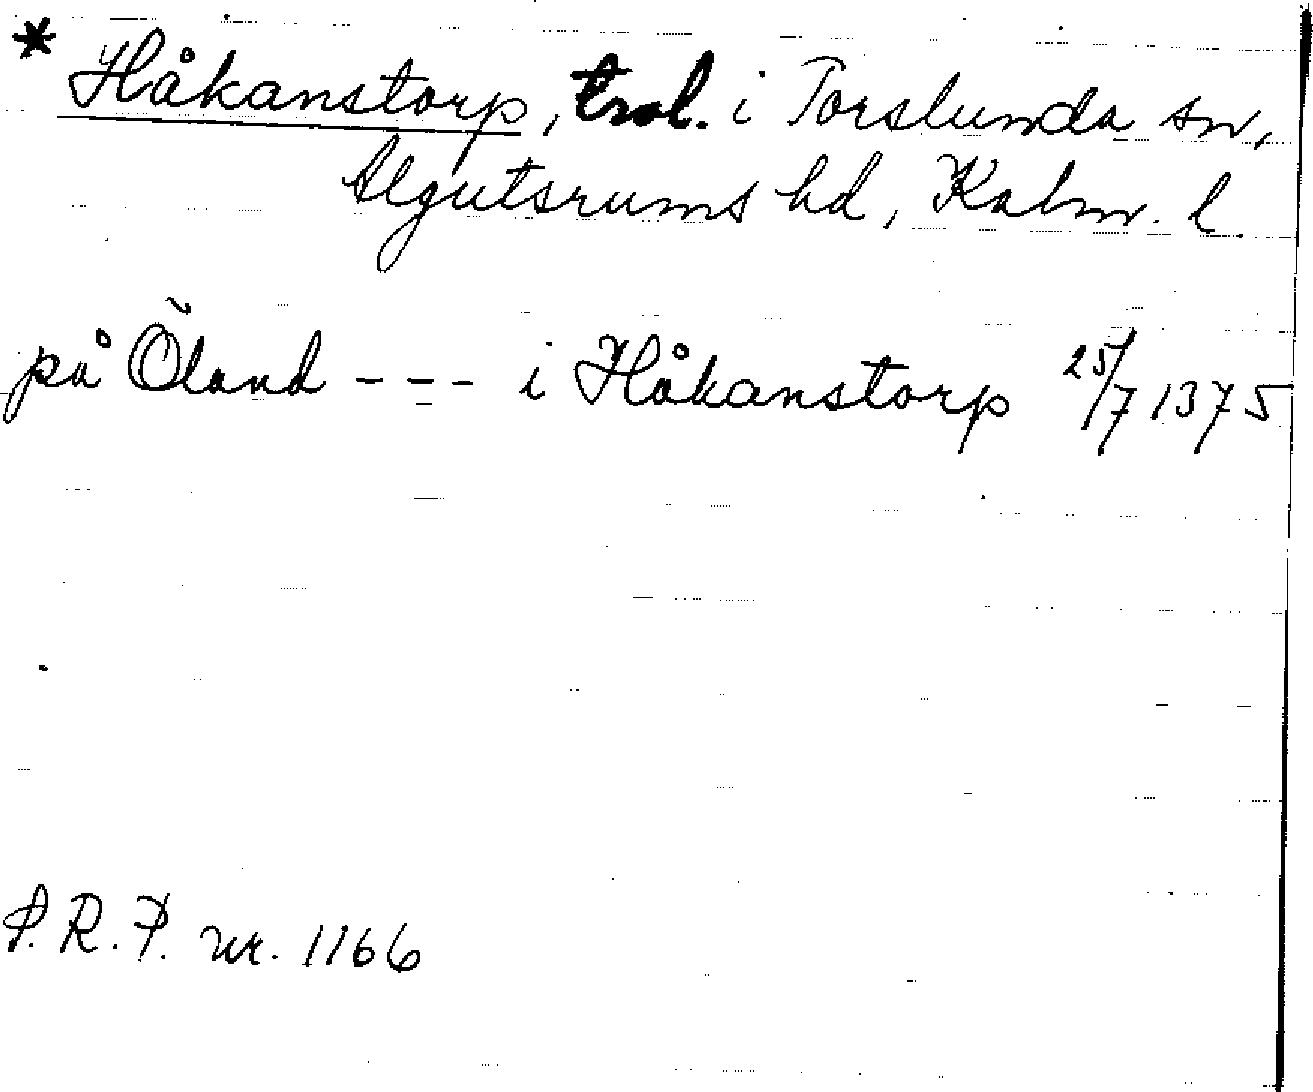 * Håkanstorp, trol. i Torslunda sn,
Algutsrums hd, Kalm. l.
på Öland - - - i Håkanstorp 25/7 1375
P.R.P. nr. 1166